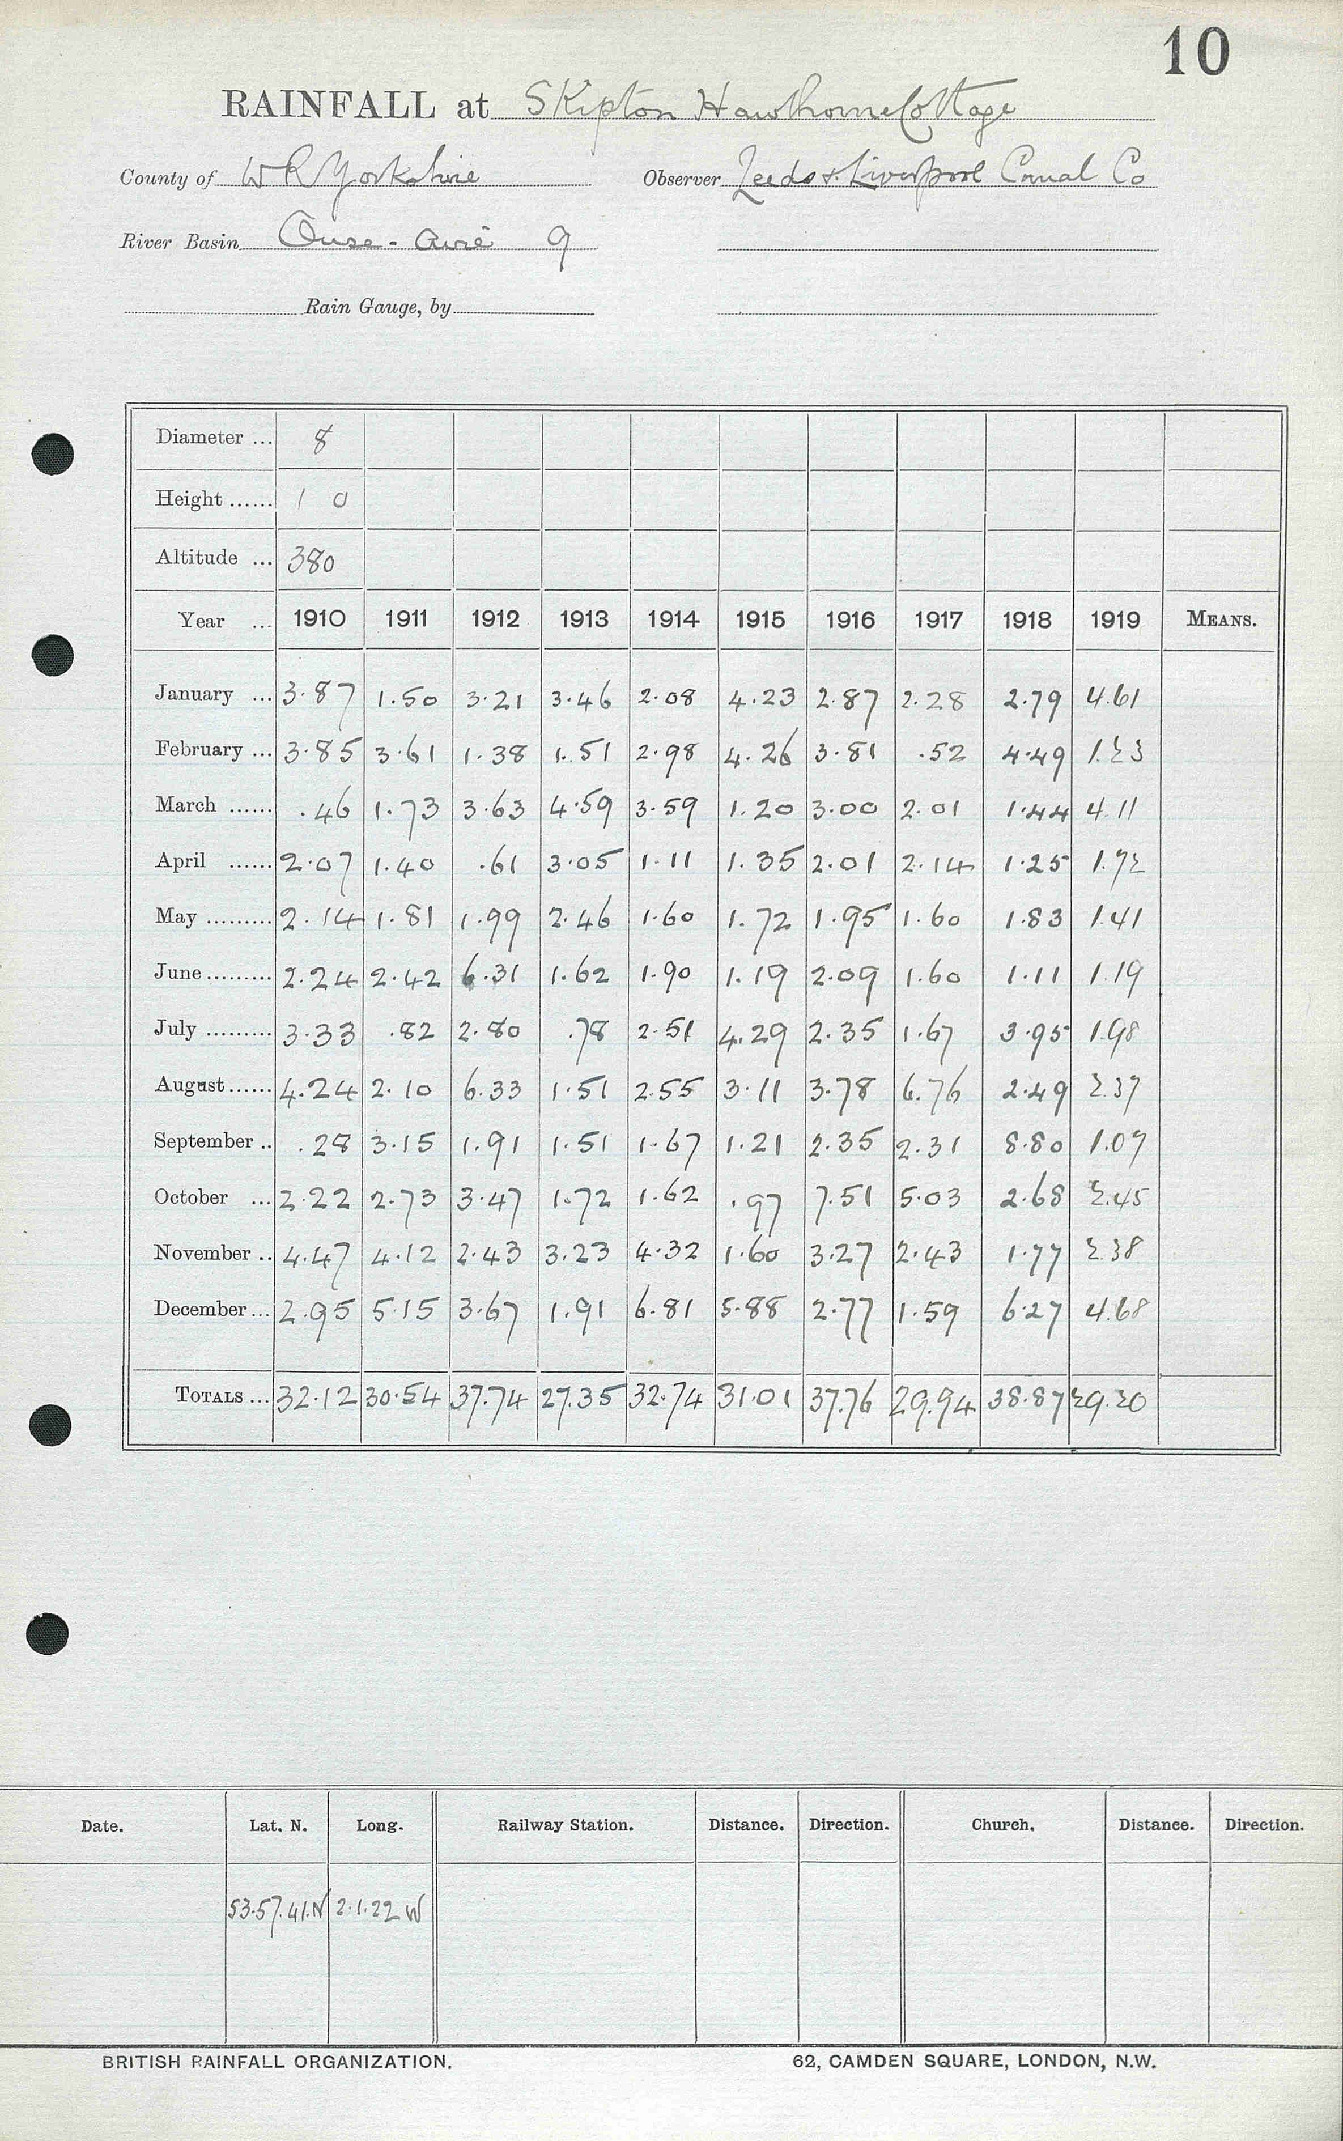 10
RAINFALL at Skipton Hawthorne Cottage
County of W R Yorkshire Observer Leeds & Liverpool Canal Co
River Basin Ouse - Aire 9
Rain Gauge, by
Diameter ... 8
Height ...... 1 0
Altitude ... 380
Year ... 1910 1911 1912 1913 1914 1915 1916 1917 1918 1919 MEANS.
January ... 3.87 1.50 3.21 3.46 2.08 4.23 2.87 2.28 2.79 4.61
February ... 3.85 3.61 1.38 1.51 2.98 4.26 3.81 .52 4.49 1.23
March ...... .46 1.73 3.63 4.59 3.59 1.20 3.00 2.01 1.44 4.11
April ...... 2.07 1.40 .61 3.05 1.11 1.35 2.01 2.14 1.25 1.72
May ......... 2.14 1.81 1.99 2.46 1.60 1.72 1.95 1.60 1.83 1.41
June ......... 2.24 2.42 6.31 1.62 1.90 1.19 2.09 1.60 1.11 1.19
July ......... 3.33 .82 2.80 .78 2.51 4.29 2.35 1.67 3.95 1.98
August ...... 4.24 2.10 6.33 1.51 2.55 3.11 3.78 6.76 2.49 2.37
September .. .28 3.15 1.91 1.51 1.67 1.21 2.35 2.31 8.80 1.07
October ... 2.22 2.73 3.47 1.72 1.62 .97 7.51 5.03 2.68 2.45
November .. 4.47 4.12 2.43 3.23 4.32 1.60 3.27 2.43 1.77 2.38
December ... 2.95 5.15 3.67 1.91 6.81 5.88 2.77 1.59 6.27 4.68
TOTALS ... 32.12 30.54 37.74 27.35 32.74 31.01 37.76 29.94 38.87 29.20
Date. Lat. N. Long. Railway Station. Distance. Direction. Church. Distance. Direction.
53.57.41.N 2.1.22 W
BRITISH RAINFALL ORGANIZATION. 62, CAMDEN SQUARE, LONDON, N.W.